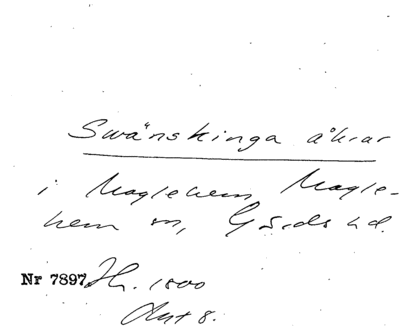 Swänskinga åkrar
i Maglehem Magle-
hem sn, Gärds hd.
Nr 7897 Hr. 1800
Akt 8.